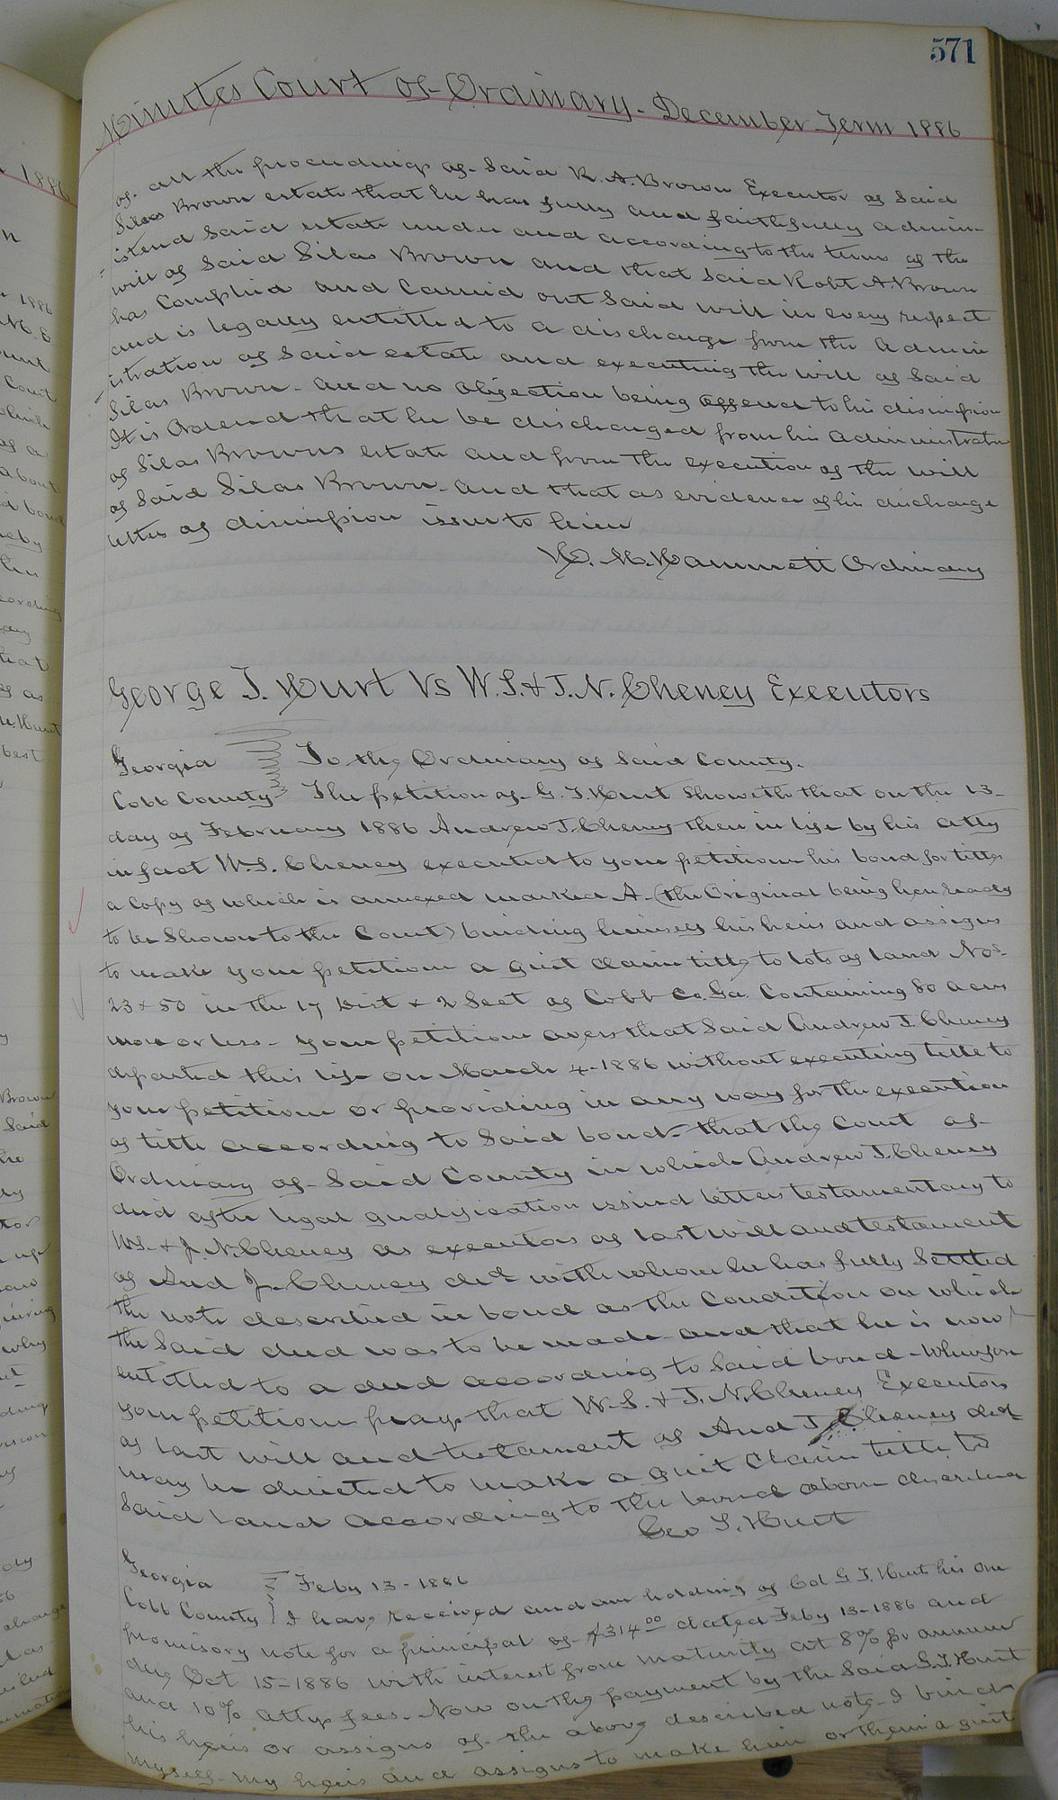 571
Minutes Court of Ordinary - December Term 1886
of all the proceedings of Said R. A. Brown Executor of Said
Silas Brown estate that he has fully and faithfully admin-
-istered Said estate under and according to the terms of the
will of Said Silas Brown and that Said Robt A. Brown
has Complied and Carried out Said will in every respect
and is legally entitled to a discharge from the Admin
-istration of Said estate and executing the will of Said
Silas Brown - and no objection being offered to his dismission
It is Ordered that he be discharged from his administration
of Silas Browns estate and from the execution of the will
of Said Silas Brown - and that as evidence of his discharge
letters of dismission issue to him
H. M. Hammett Ordinary
George T. Hurt Vs W. S. & J. N. Cheney Executors
Georgia } To the Ordinary of Said County.
Cobb County } The petition of G. T. Hurt Sheweth that on the 13-
day of February 1886 Andrew J. Cheney then in life by his atty
in fact W. S. Cheney executed to your petitioner his bond for titles
a Copy of which is annexed marked A - (the Original being here ready
to be Shown to the Court) binding himself his heirs and assigns
to make your petitioner a quit claim title to lots of land Nos
23 & 50 in the 17 Dist & 2 Sect of Cobb Co. Ga. Containing 80 acres
more or less - your petitioner avers that Said Andrew J. Cheney
departed this life on March 4 - 1886 without executing title to
your petitioner or providing in any way for the execution
of title according to Said bond - that the Court of
Ordinary of Said County in which Andrew J. Cheney
died after legal qualification issued letters testamentary to
W. S. & J. N. Cheney as executors of last will and testament
of And J. Cheney decd with whom he has fully Settled
the note described in bond as the Condition on which
the Said deed was to be made and that he is now
entitled to a deed according to Said bond - Wherefore
your petitioner prays that W. S. & J. N. Cheney Executors
of last will and testament of And J. Cheney decd
may be directed to make a quit Claim title to
Said land according to the bond above described
Geo T. Hurt
Georgia } Feby 13 - 1886
Cobb County } I have received and am holding of Col G. T. Hurt his one
promisory note for a principal of $314 00 dated Feby 13 - 1886 and
due Oct 15 - 1886 with interest from maturity at 8% per annum
and 10% Attys fees - Now on the payment by the Said G. T. Hurt
his heirs or assigns of the above described note - I bind
myself - my heirs and assigns to make him or them a quit